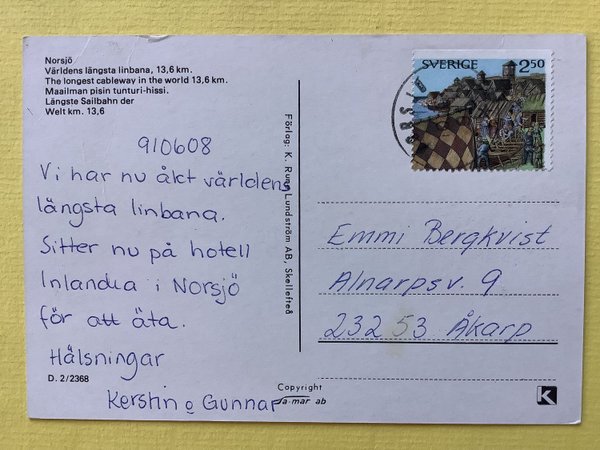 Norsjö
Världens längsta linbana, 13,6 km.
The longest cableway in the world 13,6 km.
Maailman pisin tunturi-hissi.
Längste Sailbahn der
Welt km. 13,6
910608
Vi har nu åkt världens
längsta linbana.
Sitter nu på hotell
Inlandia i Norsjö
för att äta.
Hälsningar
Kerstin o Gunnar
D. 2/2368
Förlag: K. Rune Lundström AB, Skellefteå
Copyright
a-mar ab
SVERIGE 2,50
Emmi Bergkvist
Alnarpsv. 9
232 53 Åkarp
K